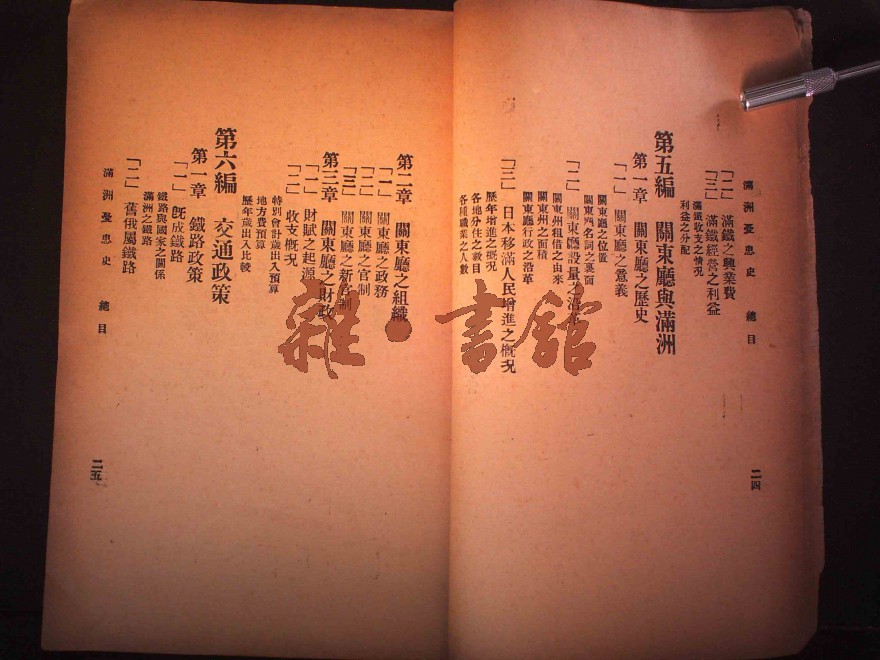 滿洲憂患史 總目
「二」 滿鐵之興業費
「三」 滿鐵經營之利益
滿鐵收支之情況
利益之分配
第五編 關東廳與滿洲
第一章 關東廳之歷史
「一」 關東廳之意義
關東廳之位置
關東四名詞之裏面
「二」 關東廳設置之沿革
關東州租借之由來
關東州之面積
關東廳行政之沿革
「三」 日本移滿人民增進之概況
歷年增進之概況
各地分住之數目
各種職業之人數
二四
第二章 關東廳之組織
「一」 關東廳之政務
「二」 關東廳之官制
「三」 關東廳之新官制
第三章 關東廳之財政
「一」 財賦之起源
「二」 收支概況
特別會計歲出入預算
地方費預算
歷年歲出入比較
第六編 交通政策
第一章 鐵路政策
「一」 既成鐵路
鐵路與國家之關係
滿洲之鐵路
「二」 舊俄屬鐵路
滿洲憂患史 總目
二五
雜·書館